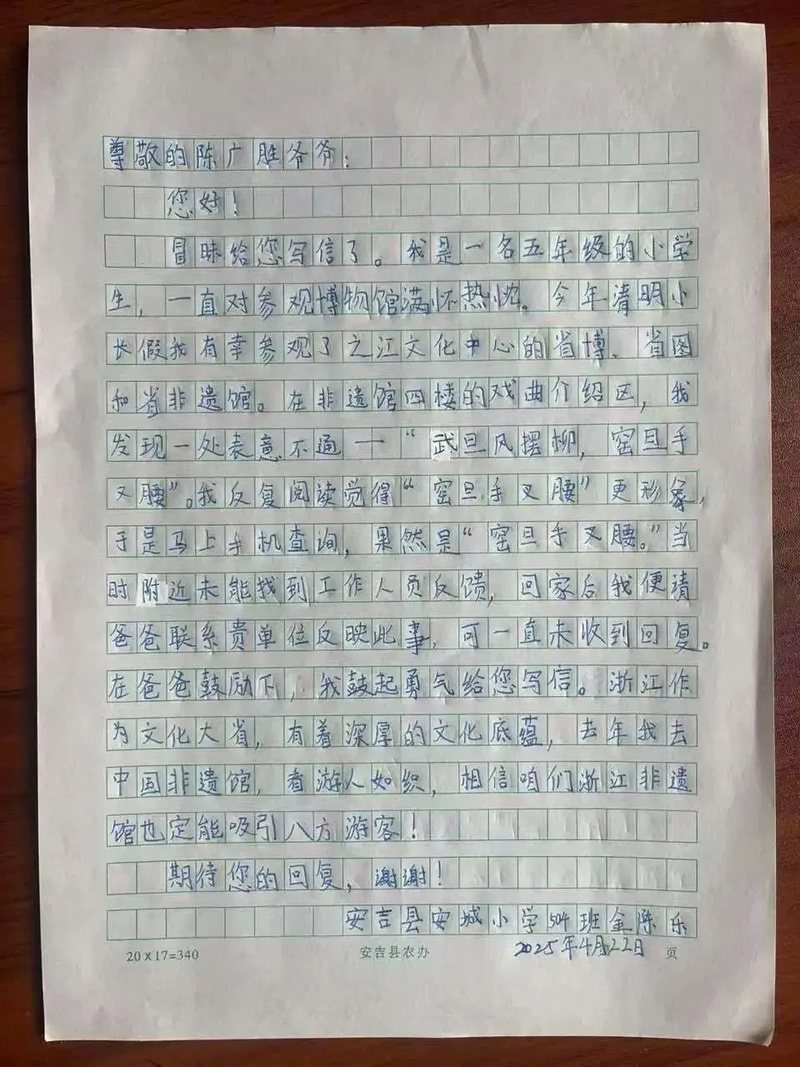 尊敬的陈广胜爷爷：
您好！
冒昧给您写信了。我是一名五年级的小学
生，一直对参观博物馆满怀热忱。今年清明小
长假我有幸参观了之江文化中心的省博、省图
和省非遗馆。在非遗馆四楼的戏曲介绍区，我
发现一处表意不通——“武旦风摆柳，窑旦手
叉腰”。我反复阅读觉得“窑旦手叉腰”更形象，
于是马上手机查询，果然是“窑旦手叉腰。”当
时附近未能找到工作人员反馈，回家后我便请
爸爸联系贵单位反映此事，可一直未收到回复。
在爸爸鼓励下，我鼓起勇气给您写信。浙江作
为文化大省，有着深厚的文化底蕴，去年我去
中国非遗馆，看游人如织，相信咱们浙江非遗
馆也定能吸引八方游客！
期待您的回复，谢谢！
安吉县安城小学504班金陈乐
20×17=340 安吉县农办 2025年4月22日 页